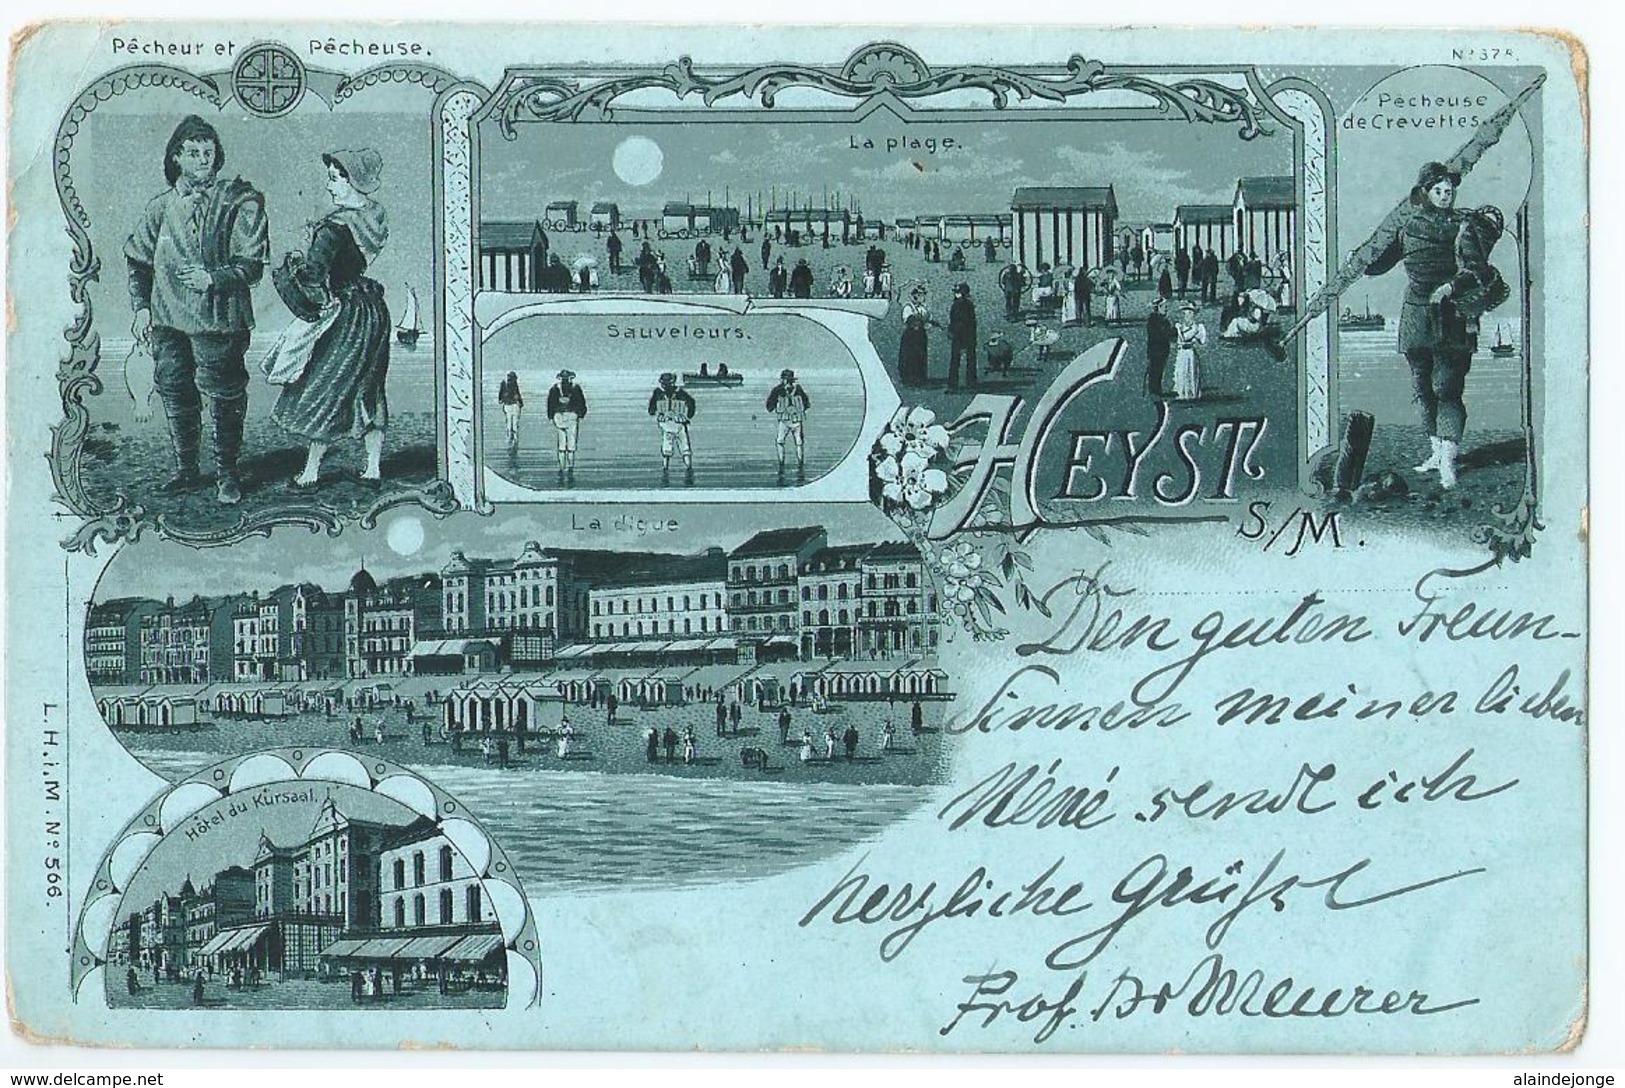 Pêcheur et Pêcheuse.
La plage.
Pêcheuse
de Crevettes.
Sauveteurs.
HEYST
S./M.
La digue
Hôtel du Kursaal.
L.H.i.M. Nº 566.
Den guten Freun-
dinnen meiner lieben
Néné sendt ich
herzliche Grüße
Prof. Dr Meurer
www.delcampe.net
alaindejonge